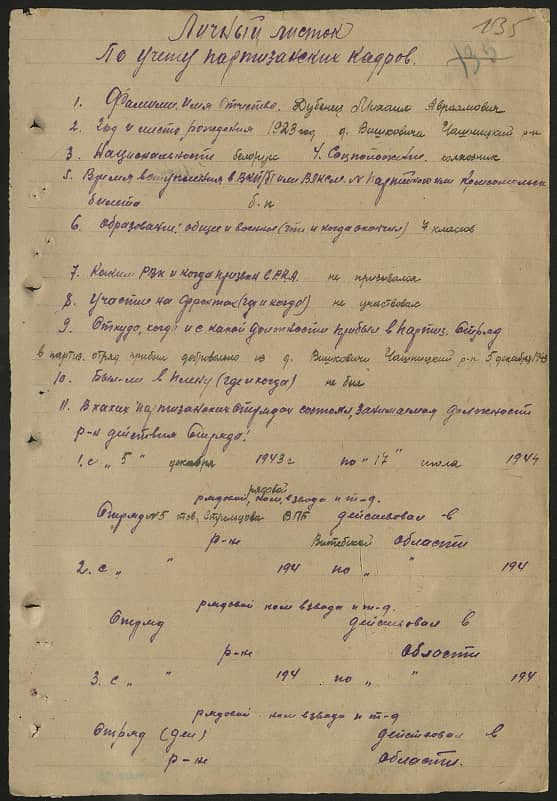 135
Личный листок
135
По учету партизанских кадров.
1. Фамилия. Имя Отчество. Дубенец Михаил Авраамович
2. Год и место рождения 1923 год д. Вишковичи Чашницкий р-н
3. Национальность белорус 4. Соцположение. колхозник
5. Время вступления в ВКП(б) или ВЛКСМ. № партийного или Комсомольск.
билета б. п
6. Образование: общее и военное (что и когда окончил) 7 классов
7. Каким РВК и когда призван в РККА. не призывался
8. Участие на фронтах (где и когда) не участвовал
9. Откуда, когда и с какой должности прибыл в партиз. Отряд
в партиз. отряд прибыл добровольно из д. Вишковичи Чашницкий р-н. 5 декабря 1943
10. Был-ли в плену (где и когда) не был
11. В каких партизанских отрядах состоял, занимаемая должность
р-н действия Отряда:
1. с „ 5 " декабря 1943 г по „ 17 " июля 1944
рядовой
рядовой, ком. взвода и т-д.
Отряд №5 тов. ВПБ действовал в
р-не Витебской области
2. с „ " 194 по „ " 194
рядовой ком взвода и т-д.
Отряд действовал в
р-не Области
3. с „ " 194 по „ " 194
рядовой ком взвода и т-д
Отряд действовал в
р-не Области.